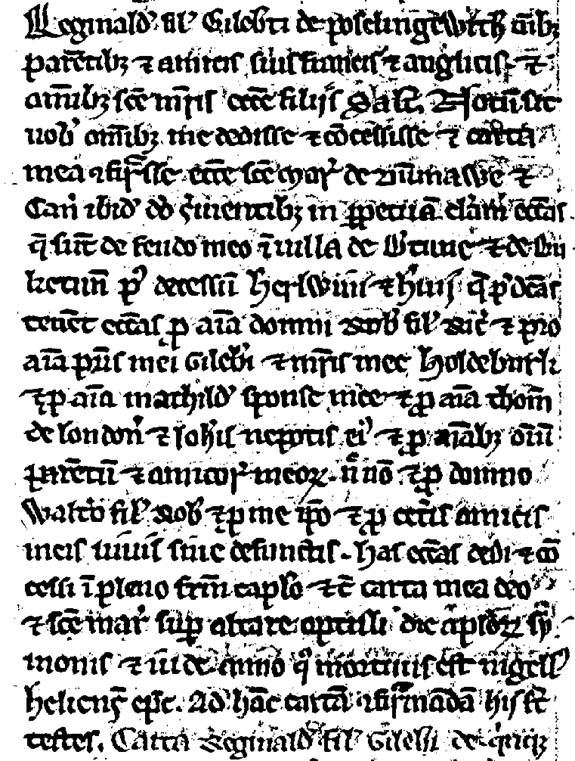 Reginald' fil' Gileb'ti de poselingeWrth om̄ibȝ
parētibȝ ⁊ amicis suis francis ⁊ anglicis. ⁊
om̄ibȝ sc̄e mr̄is eccl̄e filijs Sal̄t. Notū sit
uob' om̄ibȝ me dedisse ⁊ cōcessisse ⁊ carta
mea ꝯfirmasse eccl̄e sc̄e mar' de ⁊
Can' ibid' do' s'uientibȝ in ꝑpetuā elām̄ ecc̄as
q̄ sūt de feudo meo ī uilla de ⁊ de
ketun' p' decessū HerlWini ⁊ q' p'dc̄as
tenēt ecc̄as ꝑ aīa domni Rob' fil' Ric' ⁊ pro
aīa pr̄is mei Gileb'i ⁊ mr̄is mee Holdeburh
⁊ ꝑ aīa mathild' sponse mee ⁊ ꝑ aīa thom̄
de london' ⁊ Ioh'is nepotis ei' ⁊ ꝑ aīabȝ om̄iū
parētū ⁊ amicoꝝ meoꝝ. n̄ nō ⁊ ꝑ domno
Walt'o fil' Rob' ⁊ ꝑ me ip̄o ⁊ ꝑ cet'is amicis
meis uiuis siue defunctis. has ecc̄as dedi ⁊ cō
cessi ī pleno frm̄ capl̄o ⁊ c̄ carta mea deo
⁊ sc̄e mar' sup̱ altare optuli die apl̄oꝝ sy
monis ⁊ iude anno q' mortuus est nigell'
heliens' ep̄c. Ad hāc cartā ꝯfirmādā his st̄
testes. Carta Reginald' fil' Gileb'i de